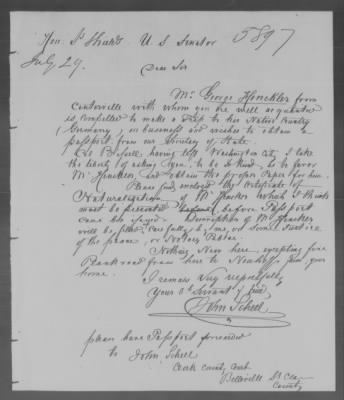 Hon. Js Shields U. S. Senator 5897
July 29.
Dear Sir
Mr. George Henckler from
Centreville with whom you are well acquainted
is compelled to make a Trip to his Native Country
(Germany) on business and wishes to obtain a
passport from our Secretary of State.
Col Bissell, having left Washington City, I take
the liberty of asking you, to be so kind, as to favor
Mr Henckler, and obtain the proper Paper for him.
Please find enclosed the Certificate of
Naturalization of Mr Henckler which I think
must be presented before a Passport
can be issued. Description of Mr Henckler
will be filled carefully by me, or some Justice
of the peace, or Notary Public.
Nothing New here, excepting fine
Plank road from here to your
home.
I remain Very respectfully
Your Obt Servant & friend,
John Scheel
please have Passport forwarded
to John Scheel
Clerk County Court
Belleville St. Clair
County